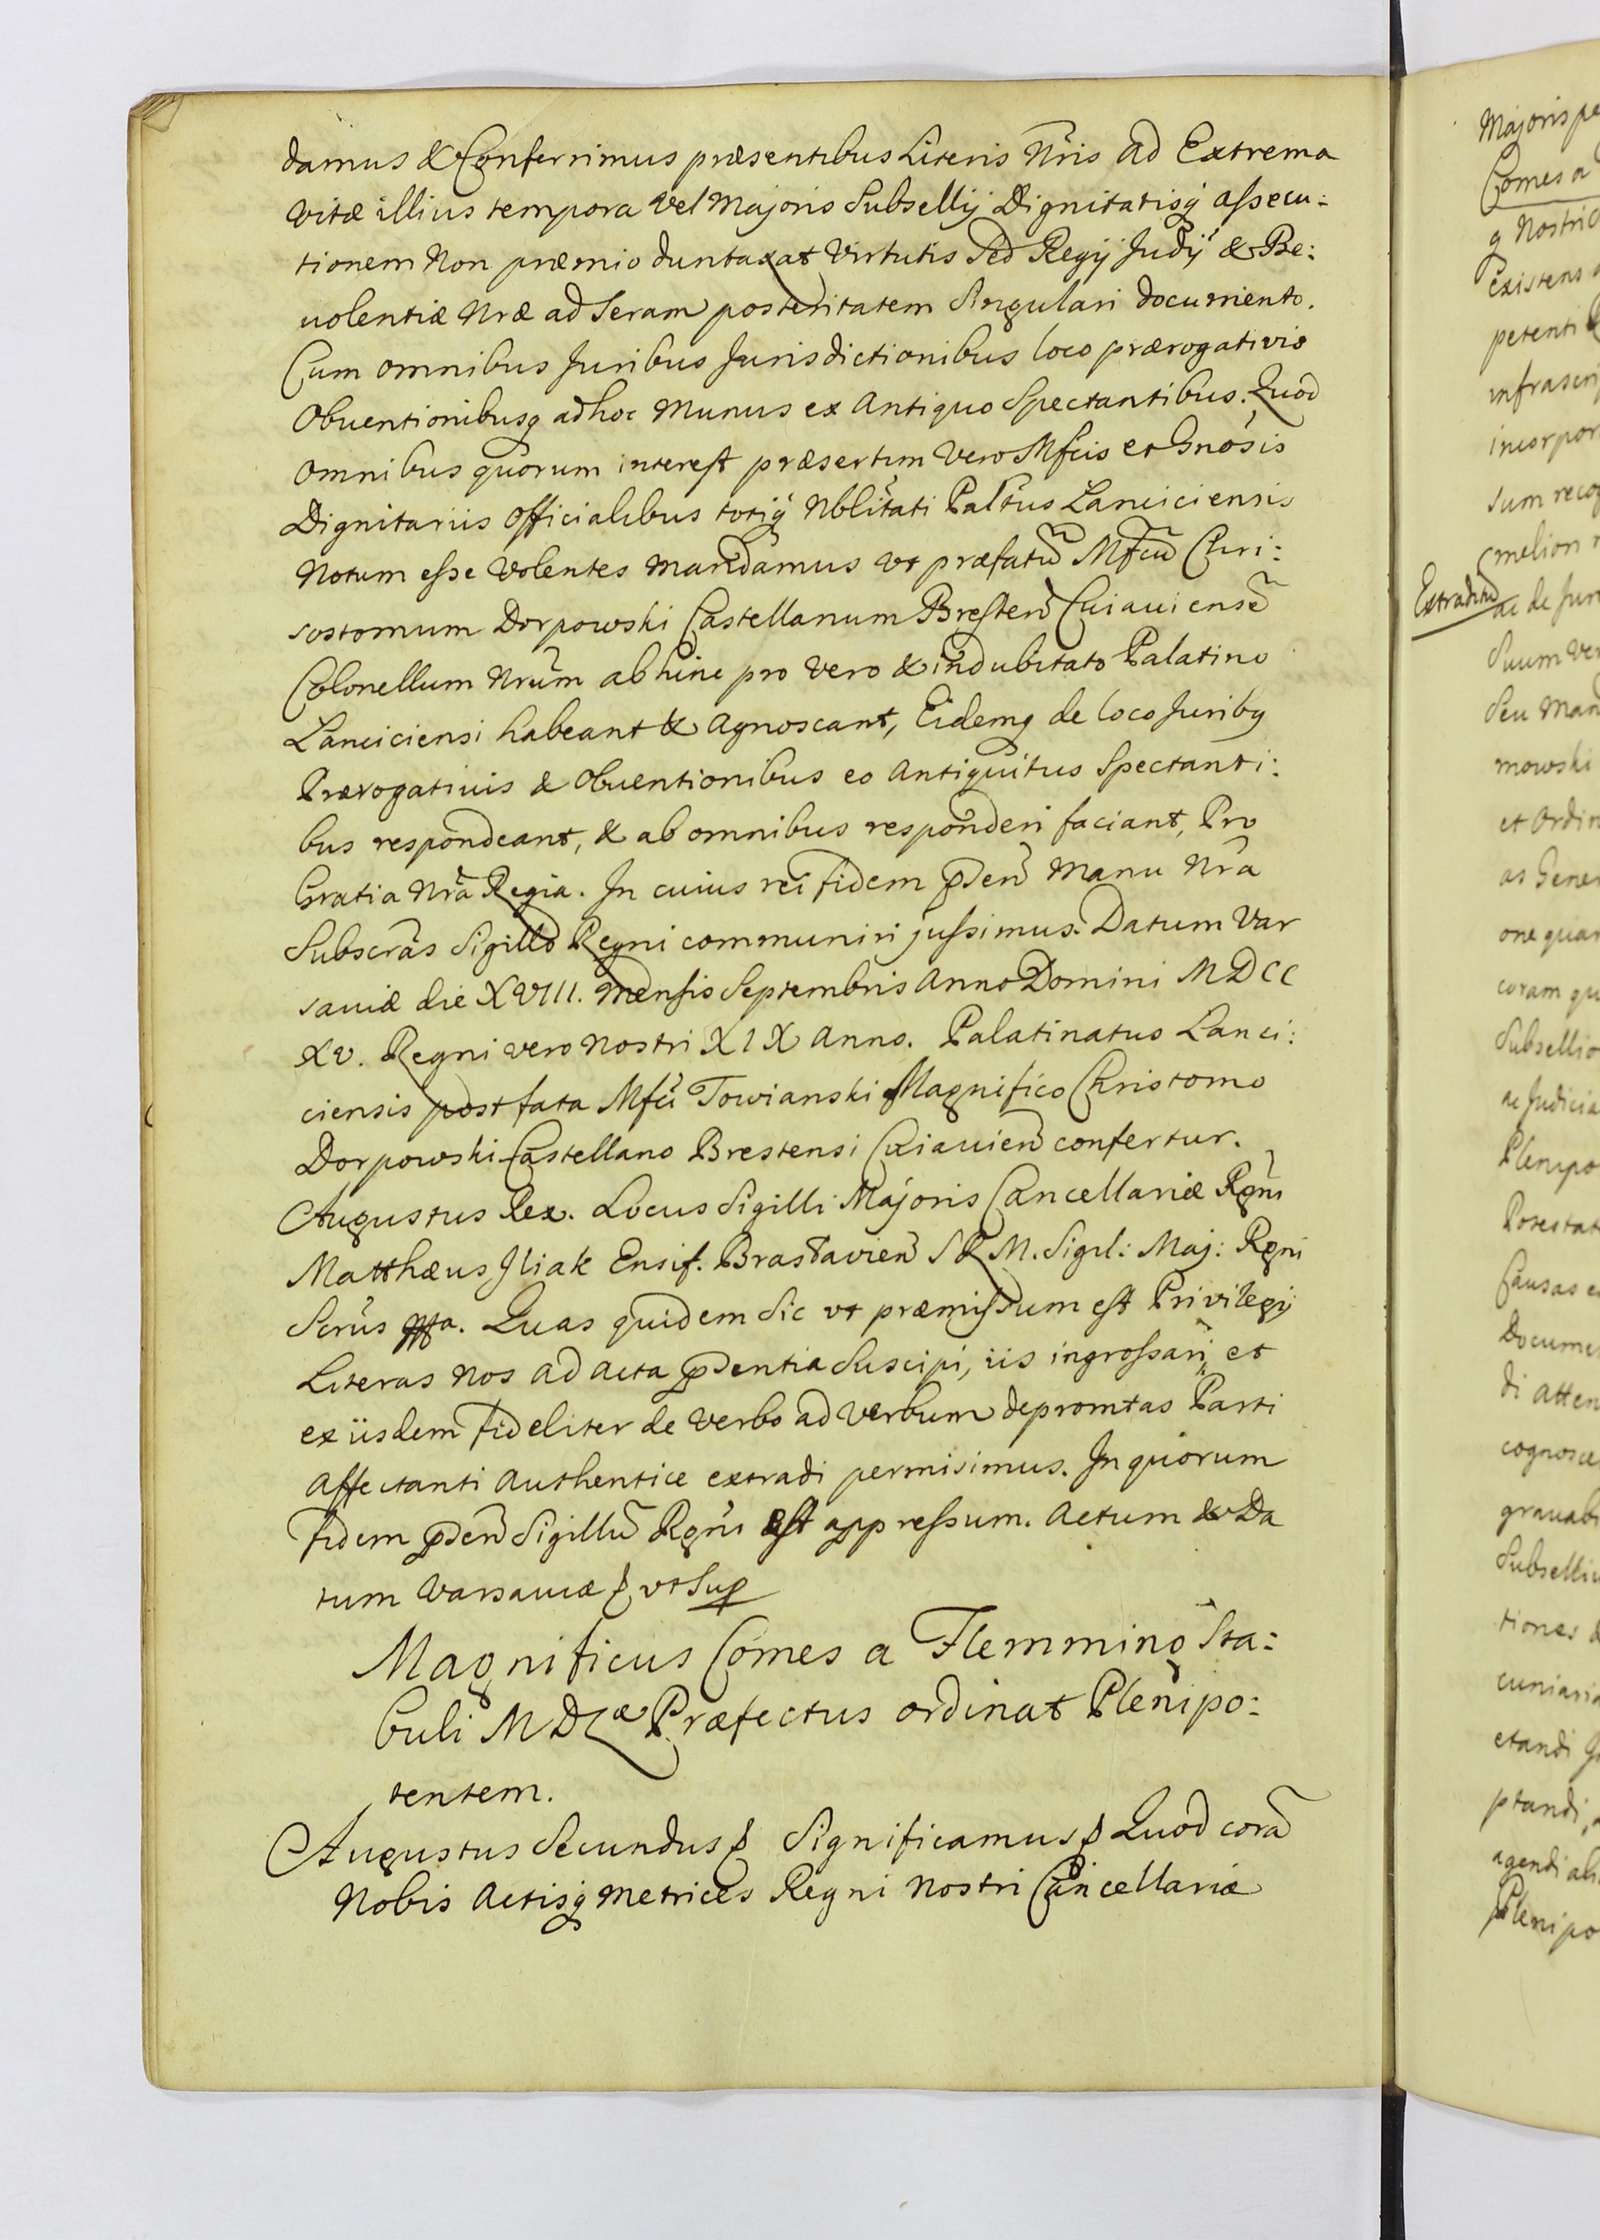 damus & Conferrimus præsentibus Literis Nr̃is ad Extrema
vitæ illius tempora vel Majoris Subsellij Dignitatisq́ assecu:
tionem Non præmio duntaxat Virtutis Sed Regij Judij & Be:
uolentiæ Nræ ad Seram posteritatem Singulari documento.
Cum omnibus Juribus Jurisdictionibus loco prærogativis
Obuentionibusq́ ad hoc Munus ex Antiquo Spectantibus. Quod
omnibus quorum interest præsertim Vero Mfcis et Gnosis
Dignitariis officialibus totiq́ Nbl̃itati Pal̃tus Lanciciensis
Notum esse Volentes mandamus vt præfatũ Mfcũ Chri:
sostomum Dorpowski Castellanum Bresten̄ Cuiauiensẽ
Colonellum Nrũm abhinc pro vero & indubitato Palatino
Lanciciensi habeant & agnoscant, Eidemq́ de loco Juribq́
Prærogatiuis & Obuentionibus eo Antiquitus Spectanti:
bus respondeant, & ab omnibus responderi faciant, Pro
Gratia Nr̃a Regia. In cuius rei fidem p̱sen̄ Manu Nr̃a
Subscr̃as Sigillo Regni communiri jussimus. Datum Var
sauiæ die XVIII. Mensis Septembris Anno Domini MDCC
XV. Regni vero nostri XIX Anno. Palatinatus Lanci:
ciensis post fata Mfci Towianski Magnifico Christomo
Dorpowski Castellano Brestensi Cuiauien̄ confertur.
Augustus Rex. Locus Sigilli Majoris Cancellariæ Rg̃ni
Matthæus Iliak Ensif. Braslavien̄ S R M. Sigil: Maj: Rgni
Scrũs mp̃a. Quas quidem Sic vt præmissum est Privilegij
Literas Nos ad acta p̱sentia Suscipi, iis ingrossari et
ex iisdem fideliter de verbo ad verbum depromtas Parti
affectanti Authentice extradi permisimus. In quorum
fidem p̱sen̄ Sigillũ Rg̃ni est appressum. Actum & Da
tum Varsauiæ ꝭ vt Sup̱
Magnificus Comes a Flemming Sta:
buli M D Lᵃᵉ Præfectus ordinat Plenipo:
tentem.
Augustus Secundus ꝭ Significamus ꝭ Quod corã
Nobis Actisq́ Metrices Regni Nostri Cancellariæ
Majoris
Comes a
q́ Nostric
Existens
petenti
infrascri
incorpor
sum recog
melion
Extraditũ
ac de Jure
Suum ver
Seu Man
mowski
et Ordin
as Gener
one quar
coram qu
Subsellio
ac Judicia
Plenipo
Potestat
Causas
Docume
di atten
cognosce
grauab
Subselliu
tiones
cuniaria
etandi
ptandi,
agendi ali
Plenipo